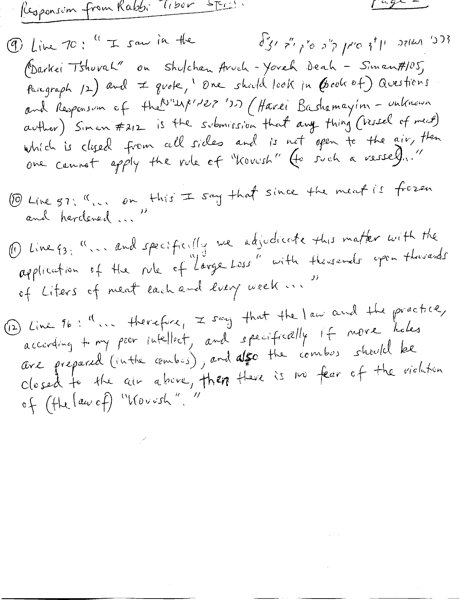 Responsum from Rabbi Tibor
Page 2
(9) Line 70: "I saw in the דרכי תשובה יו"ד סימן ק"ה
(Darkei Tshuvah" on Shulchan Aruch - Yoreh Deah - Siman #105,
Paragraph 12) and I quote, 'One should look in (book of) Questions
and Responsum of the (Harei Bashemayim - unknown
author) Siman #212 is the submission that any thing (vessel of meat)
which is closed from all sides and is not open to the air, then
one cannot apply the rule of "Kovush" (to such a vessel)..."
(10) Line 87: "... on this I say that since the meat is frozen
and hardened ..."
(11) Line 93: "... and specifically we adjudicate this matter with the
application of the rule of "Large Loss" with thousands upon thousands
of Liters of meat each and every week ..."
(12) Line 96: "... therefore, I say that the law and the practice,
according to my poor intellect, and specifically if more holes
are prepared (in the combos), and also the combos should be
closed to the air above, then there is no fear of the violation
of (the law of) "Kovush"."